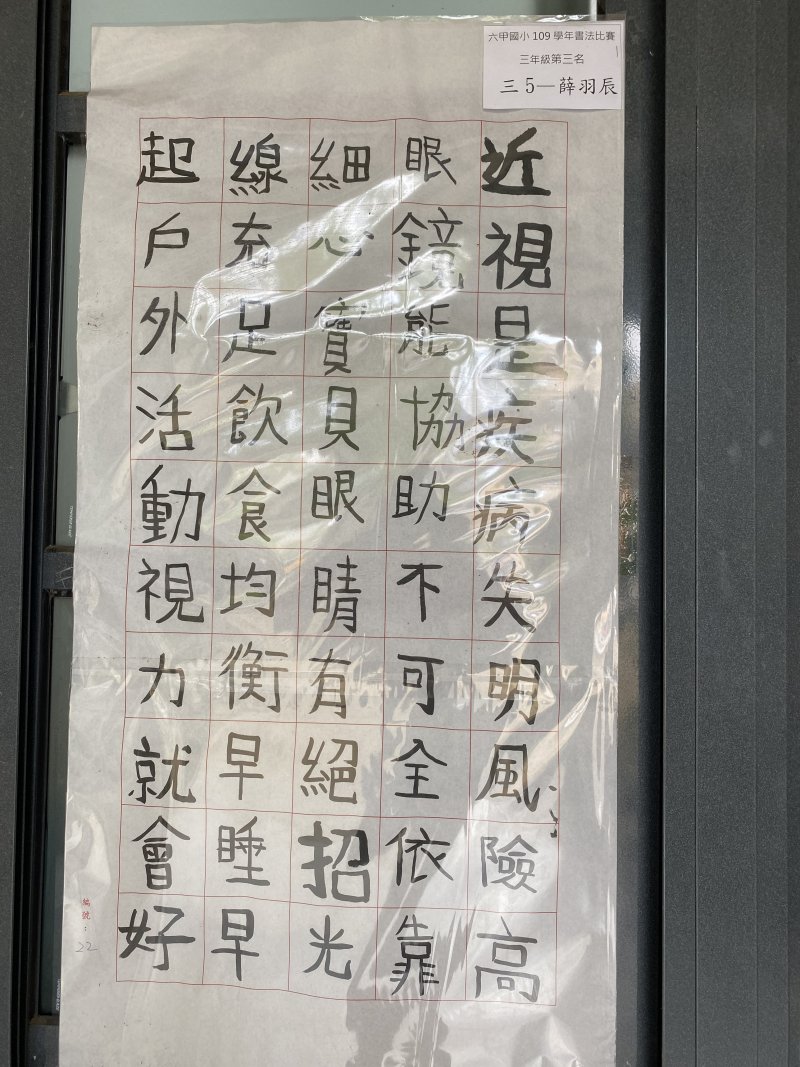 六甲國小 109 學年書法比賽
三年級第三名
三 5—薛羽辰
近視是疾病失明風險高
眼鏡能協助不可全依靠
細心寶貝眼睛有絕招光
線充足飲食均衡早睡早
起戶外活動視力就會好
編號：
22